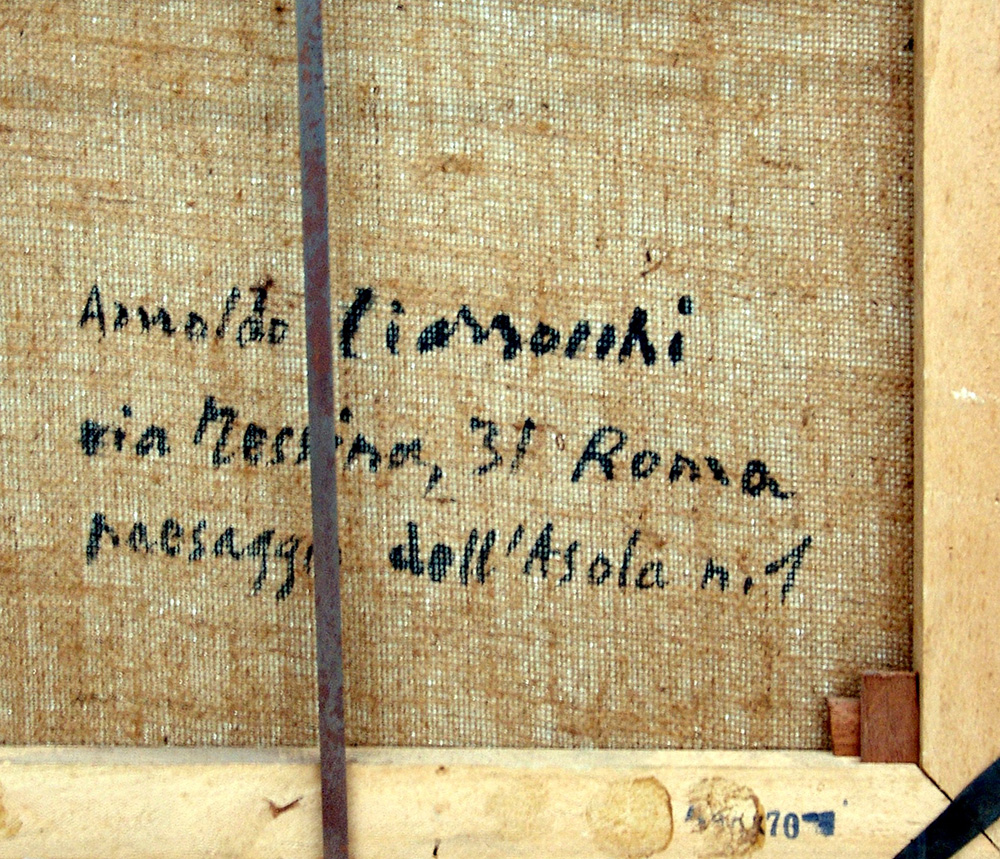 Arnoldo Ciarrocchi
via Messina, 31 Roma
paesaggi dell'Asola n. 1
70